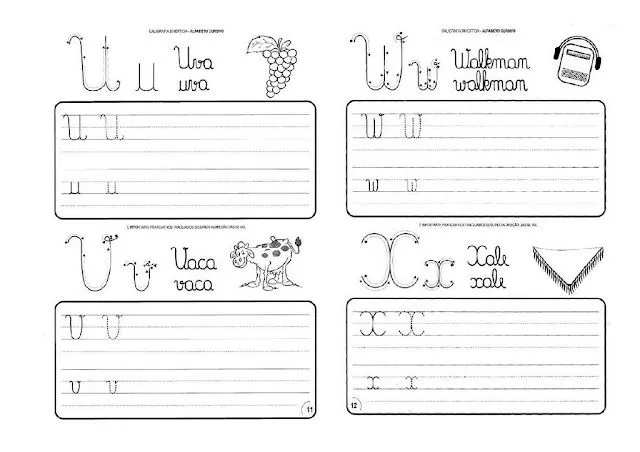 CALIGRAFIA DIVERTIDA - ALFABETO CURSIVO
U u Uva
uva
U U
u u
É IMPORTANTE PRATICAR NOS TRACEJADOS SEGUINDO A DIREÇÃO DAS SETAS.
V v Vaca
vaca
V V
v v
11
CALIGRAFIA DIVERTIDA - ALFABETO CURSIVO
W w Walkman
walkman
W W
w w
É IMPORTANTE PRATICAR NOS TRACEJADOS SEGUINDO A DIREÇÃO DAS SETAS.
X x Xale
xale
X X
x x
12